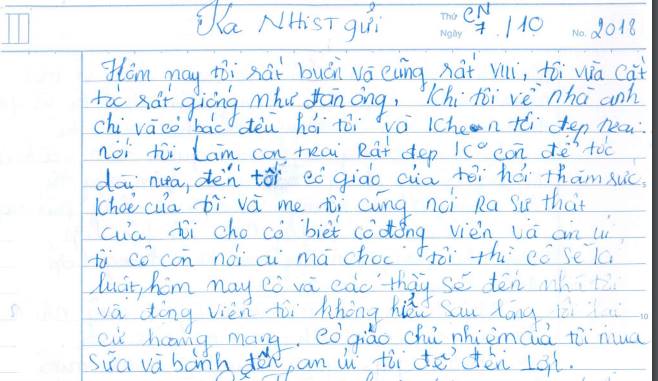 Ka NHiST gửi Thứ CN Ngày 7/10 No. 2018
Hôm nay tôi rất buồn và cũng rất vui, tôi vừa cắt
tóc rất giống như đàn ông, Khi tôi về nhà anh
chị và cô bác đều hỏi tôi và Khen tôi đẹp trai
nói tôi Làm con trai Rất đẹp Ko cần để tóc
dài nữa, đến tối cô giáo của tôi hỏi thăm sức
Khoẻ của tôi và mẹ tôi cũng nói Ra Sự thật
của tôi cho cô biết cô động viên và an ủi
tôi cô còn nói ai mà chọc tôi thì cô sẽ kỉ
luật, hôm nay cô và các thầy sẽ đến nhà tôi
và động viên tôi không hiểu sau lòng tôi lại
cứ hoang mang. Cô giáo chủ nhiệm của tôi mua
sữa và bánh đến, an ủi tôi để đến